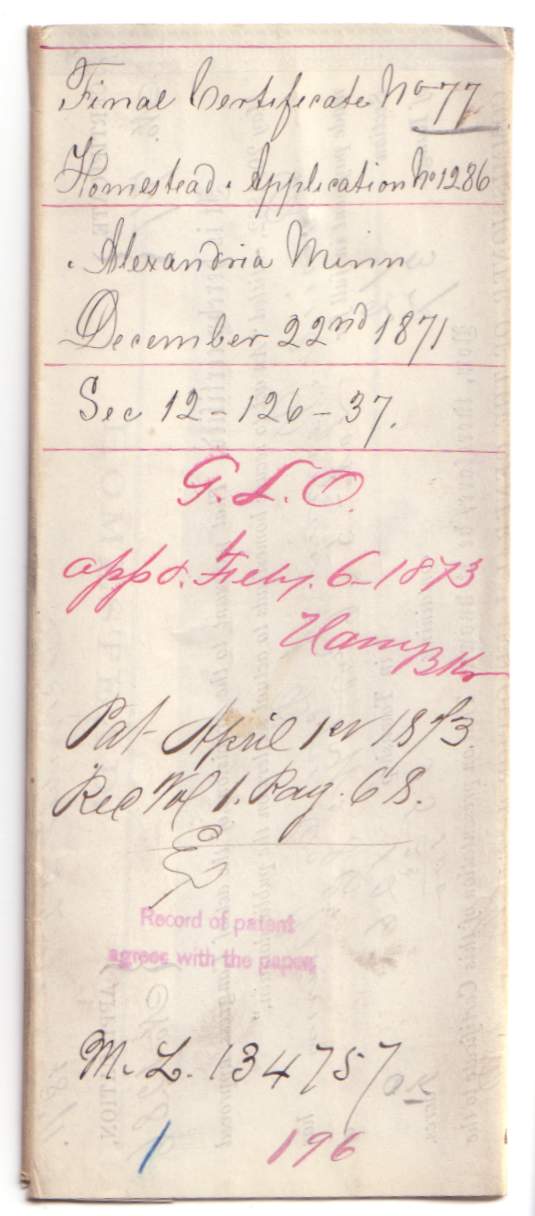 Final Certificate No 77
Homestead Application No 1286
Alexandria Minn
December 22nd 1871
Sec 12-126-37.
G.L.O.
appd. Feby. 6-1873
Harry
Pat April 1st 1873
Rec Vol 1. Pag. 68.
Record of patent
agrees with the paper.
M. L. 134757
OK
1 196